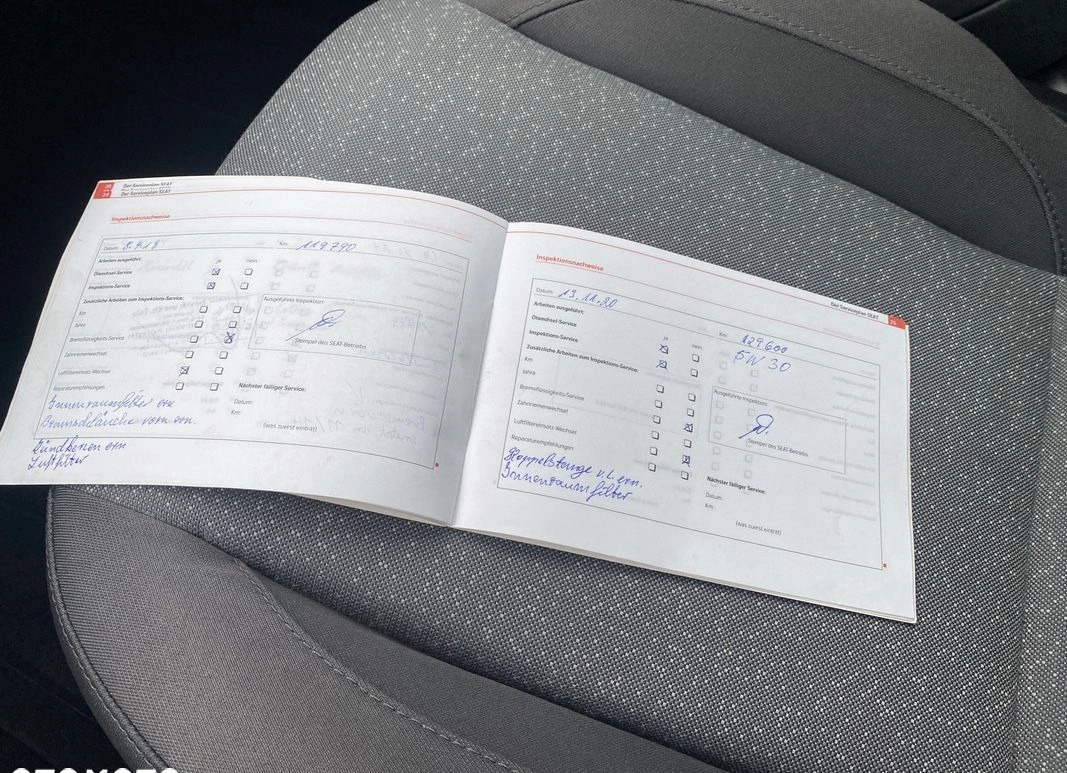 Der Serviceplan SEAT
Der Serviceplan SEAT
Inspektionsnachweise
Datum: 8.4.18
Km: 119790
Arbeiten ausgeführt:
ja nein
Ölwechsel-Service
Inspektions-Service
Zusätzliche Arbeiten zum Inspektions-Service:
Km
Jahre
Bremsflüssigkeits-Service
Zahnriemenwechsel
Luftfiltereinsatz-Wechsel
Reparaturempfehlungen
Ausgeführte Inspektion:
Stempel des SEAT-Betriebs
Nächster fälliger Service:
Datum:
Km:
(was zuerst eintritt)
Innenraumfilter ern
Bremsschläuche vorn ern.
Zündkerzen ern
Luftfilter
Der Serviceplan SEAT
25
Inspektionsnachweise
Datum: 13.11.20
Km: 129600
5W 30
Arbeiten ausgeführt:
ja nein
Ölwechsel-Service
Inspektions-Service
Zusätzliche Arbeiten zum Inspektions-Service:
Km
Jahre
Bremsflüssigkeits-Service
Zahnriemenwechsel
Luftfiltereinsatz-Wechsel
Reparaturempfehlungen
Ausgeführte Inspektion:
Stempel des SEAT-Betriebs
Nächster fälliger Service:
Datum:
Km
(was zuerst eintritt)
Koppelstange v.l. ern.
Innenraumfilter